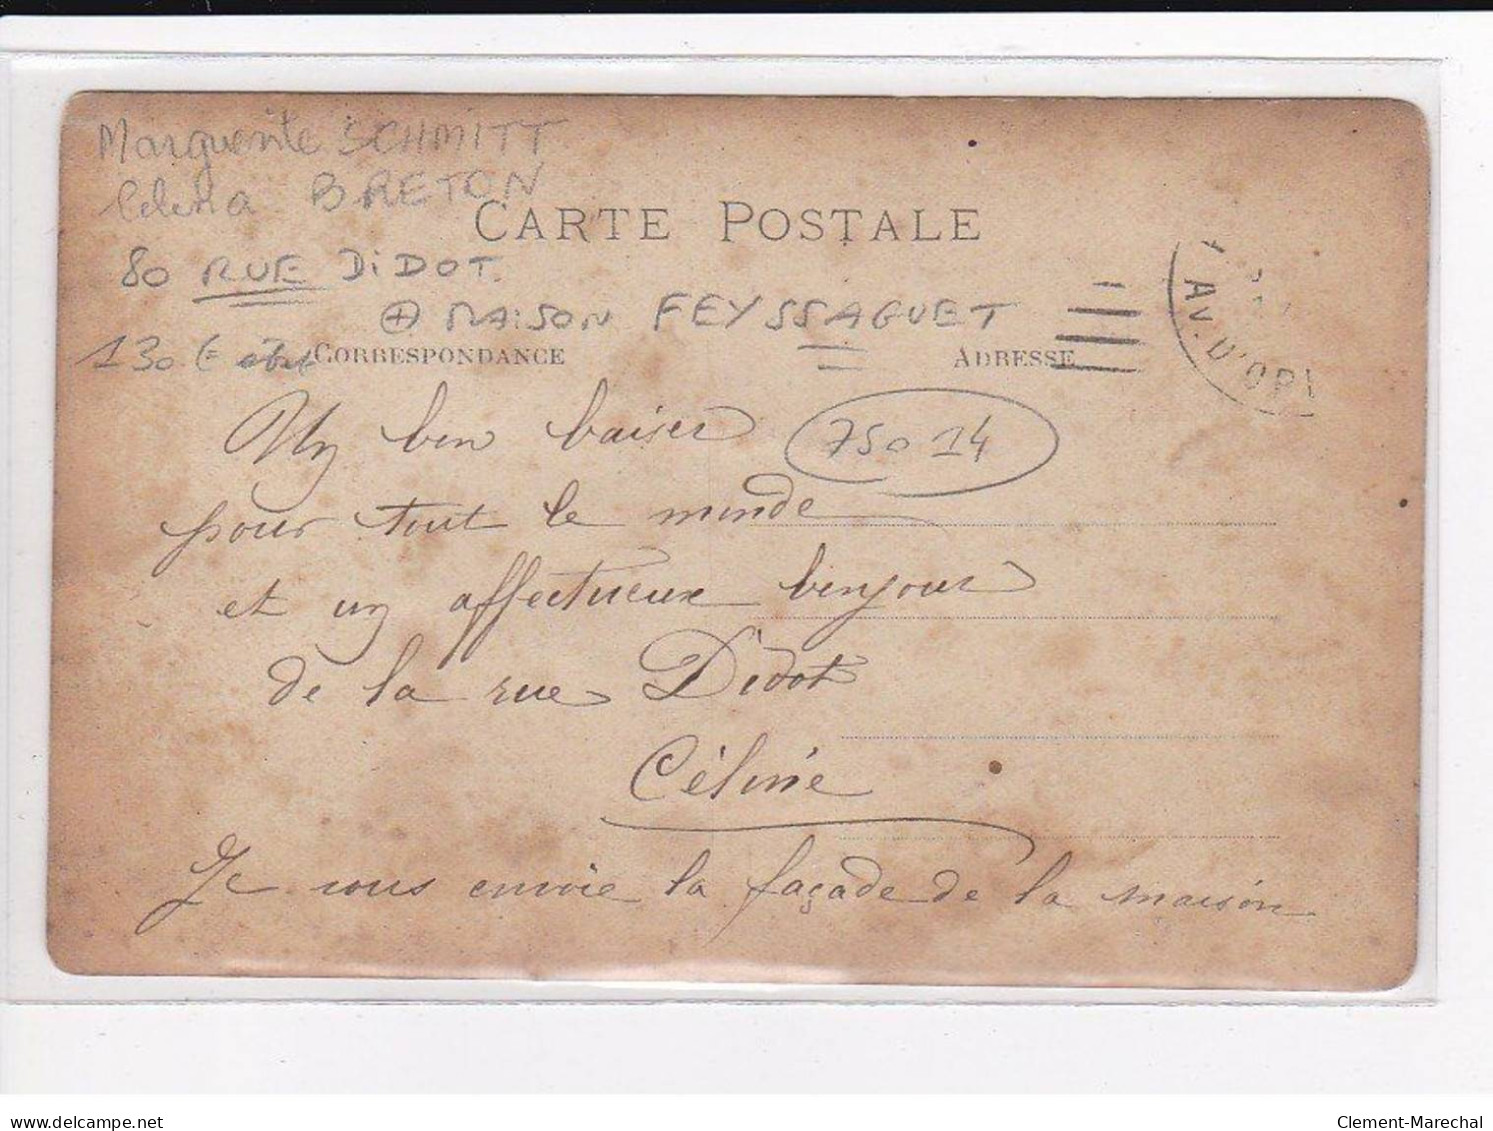 Marguerite SCHMITT
Célina BRETON
CARTE POSTALE
80 RUE DIDOT.
⊕ MAISON FEYSSAGUET
130 € état
CORRESPONDANCE
ADRESSE
AV. D'OR
Un bon baiser
75014
pour tout le monde
et un affectueux bonjour
de la rue Didot
Céline
Je vous envoie la façade de la maison
delcampe.net
Clement-Marechal